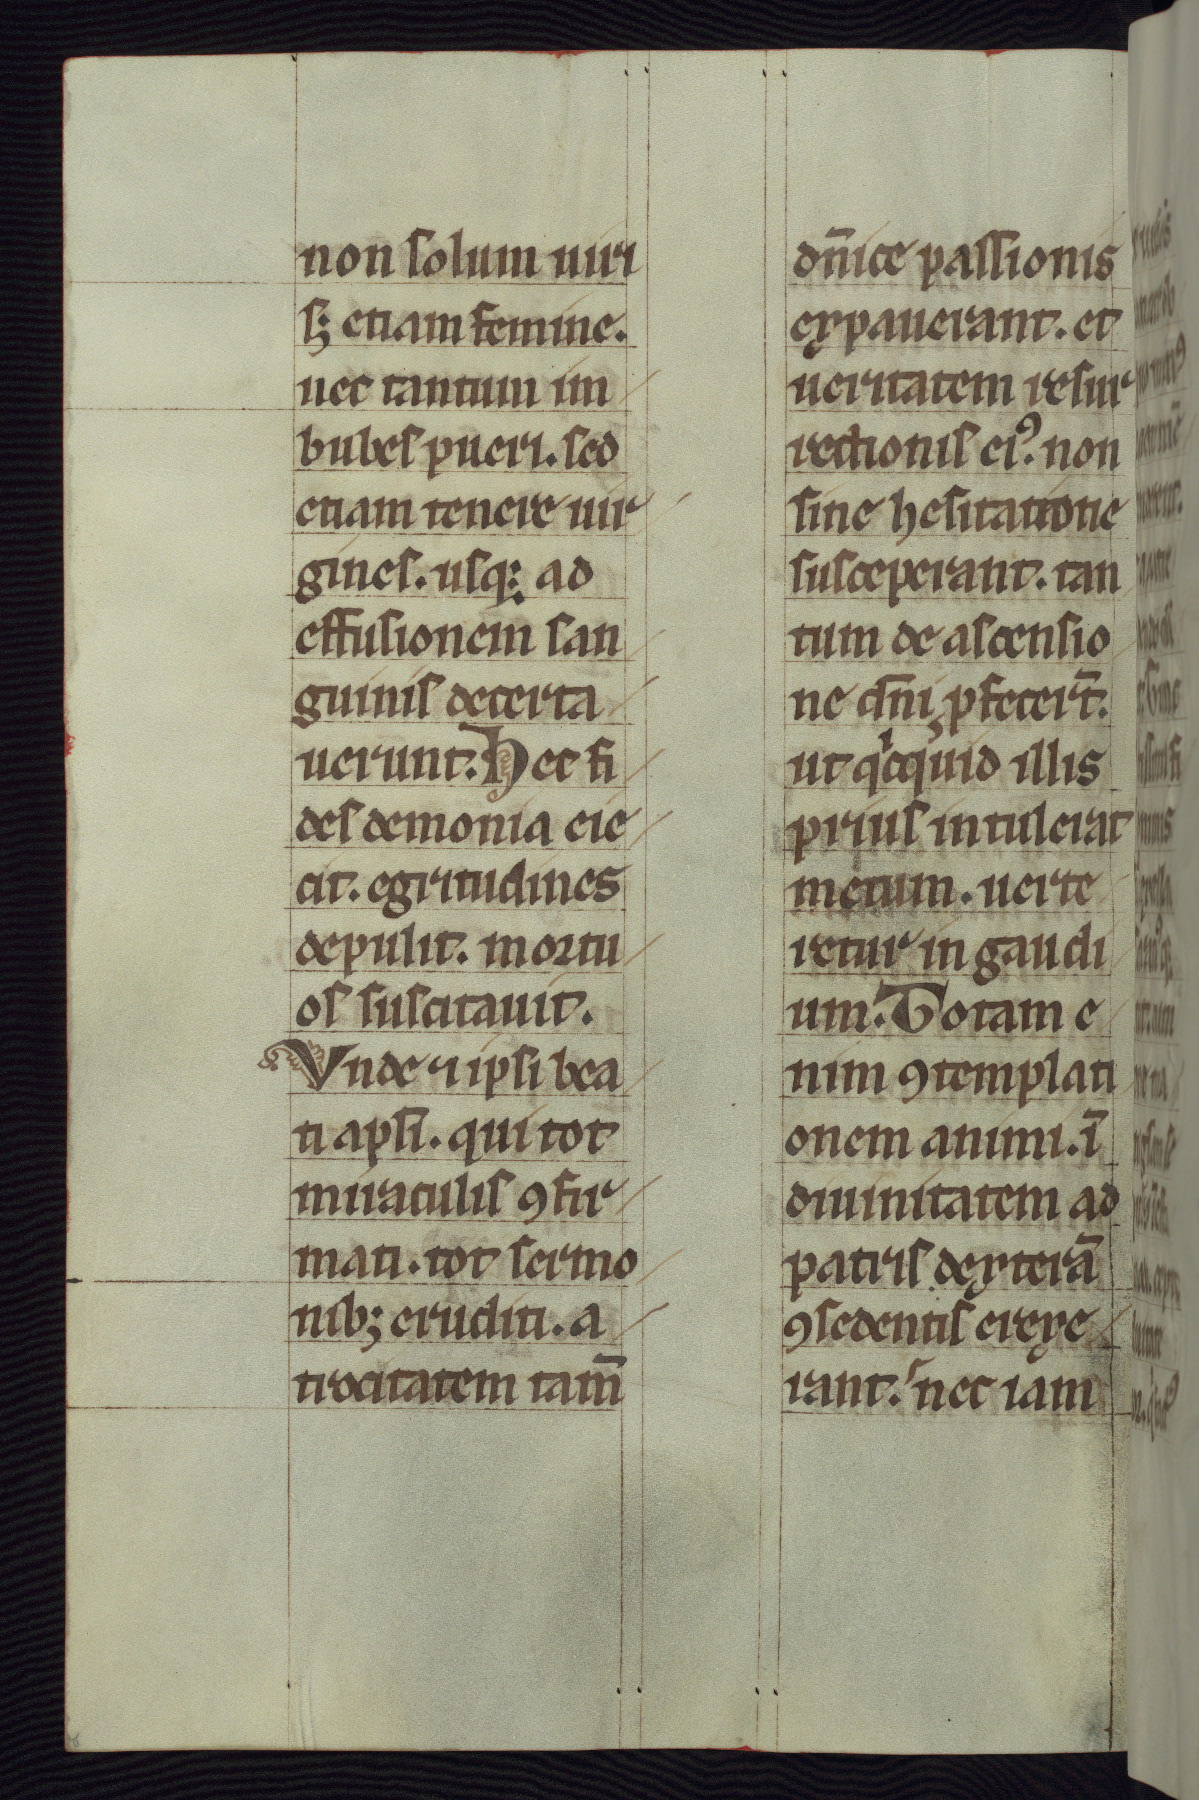 non solum uiri
sꝫ etiam femine.
nec tantum im
bubes pueri. sed
etiam tenere uir
gines. usq; ad
effusionem san
guinis decerta
uerunt. Hec fi
des demonia eie
cit. egritudines
depulit. mortu
os suscitauit.
Vnde ⁊ ipsi bea
ti apłi. qui tot
miraculis ꝯfir
mati. tot sermo
nibꝫ eruditi. a
trocitatem tam̄
dn̄ice passionis
expauerant. et
ueritatem resur
rectionis eiꝰ. non
sine hesitatione
susceperant. tan
tum de ascensio
ne dn̄i ꝓfecer̄t.
ut qͥcquid illis
prius intulerat
metum. uerte
retur in gaudi
um. Totam e
nim ꝯtemplati
onem animi. ī
diuinitatem ad
patris dexterā
ꝯsedentis erexe
rant. nec iam